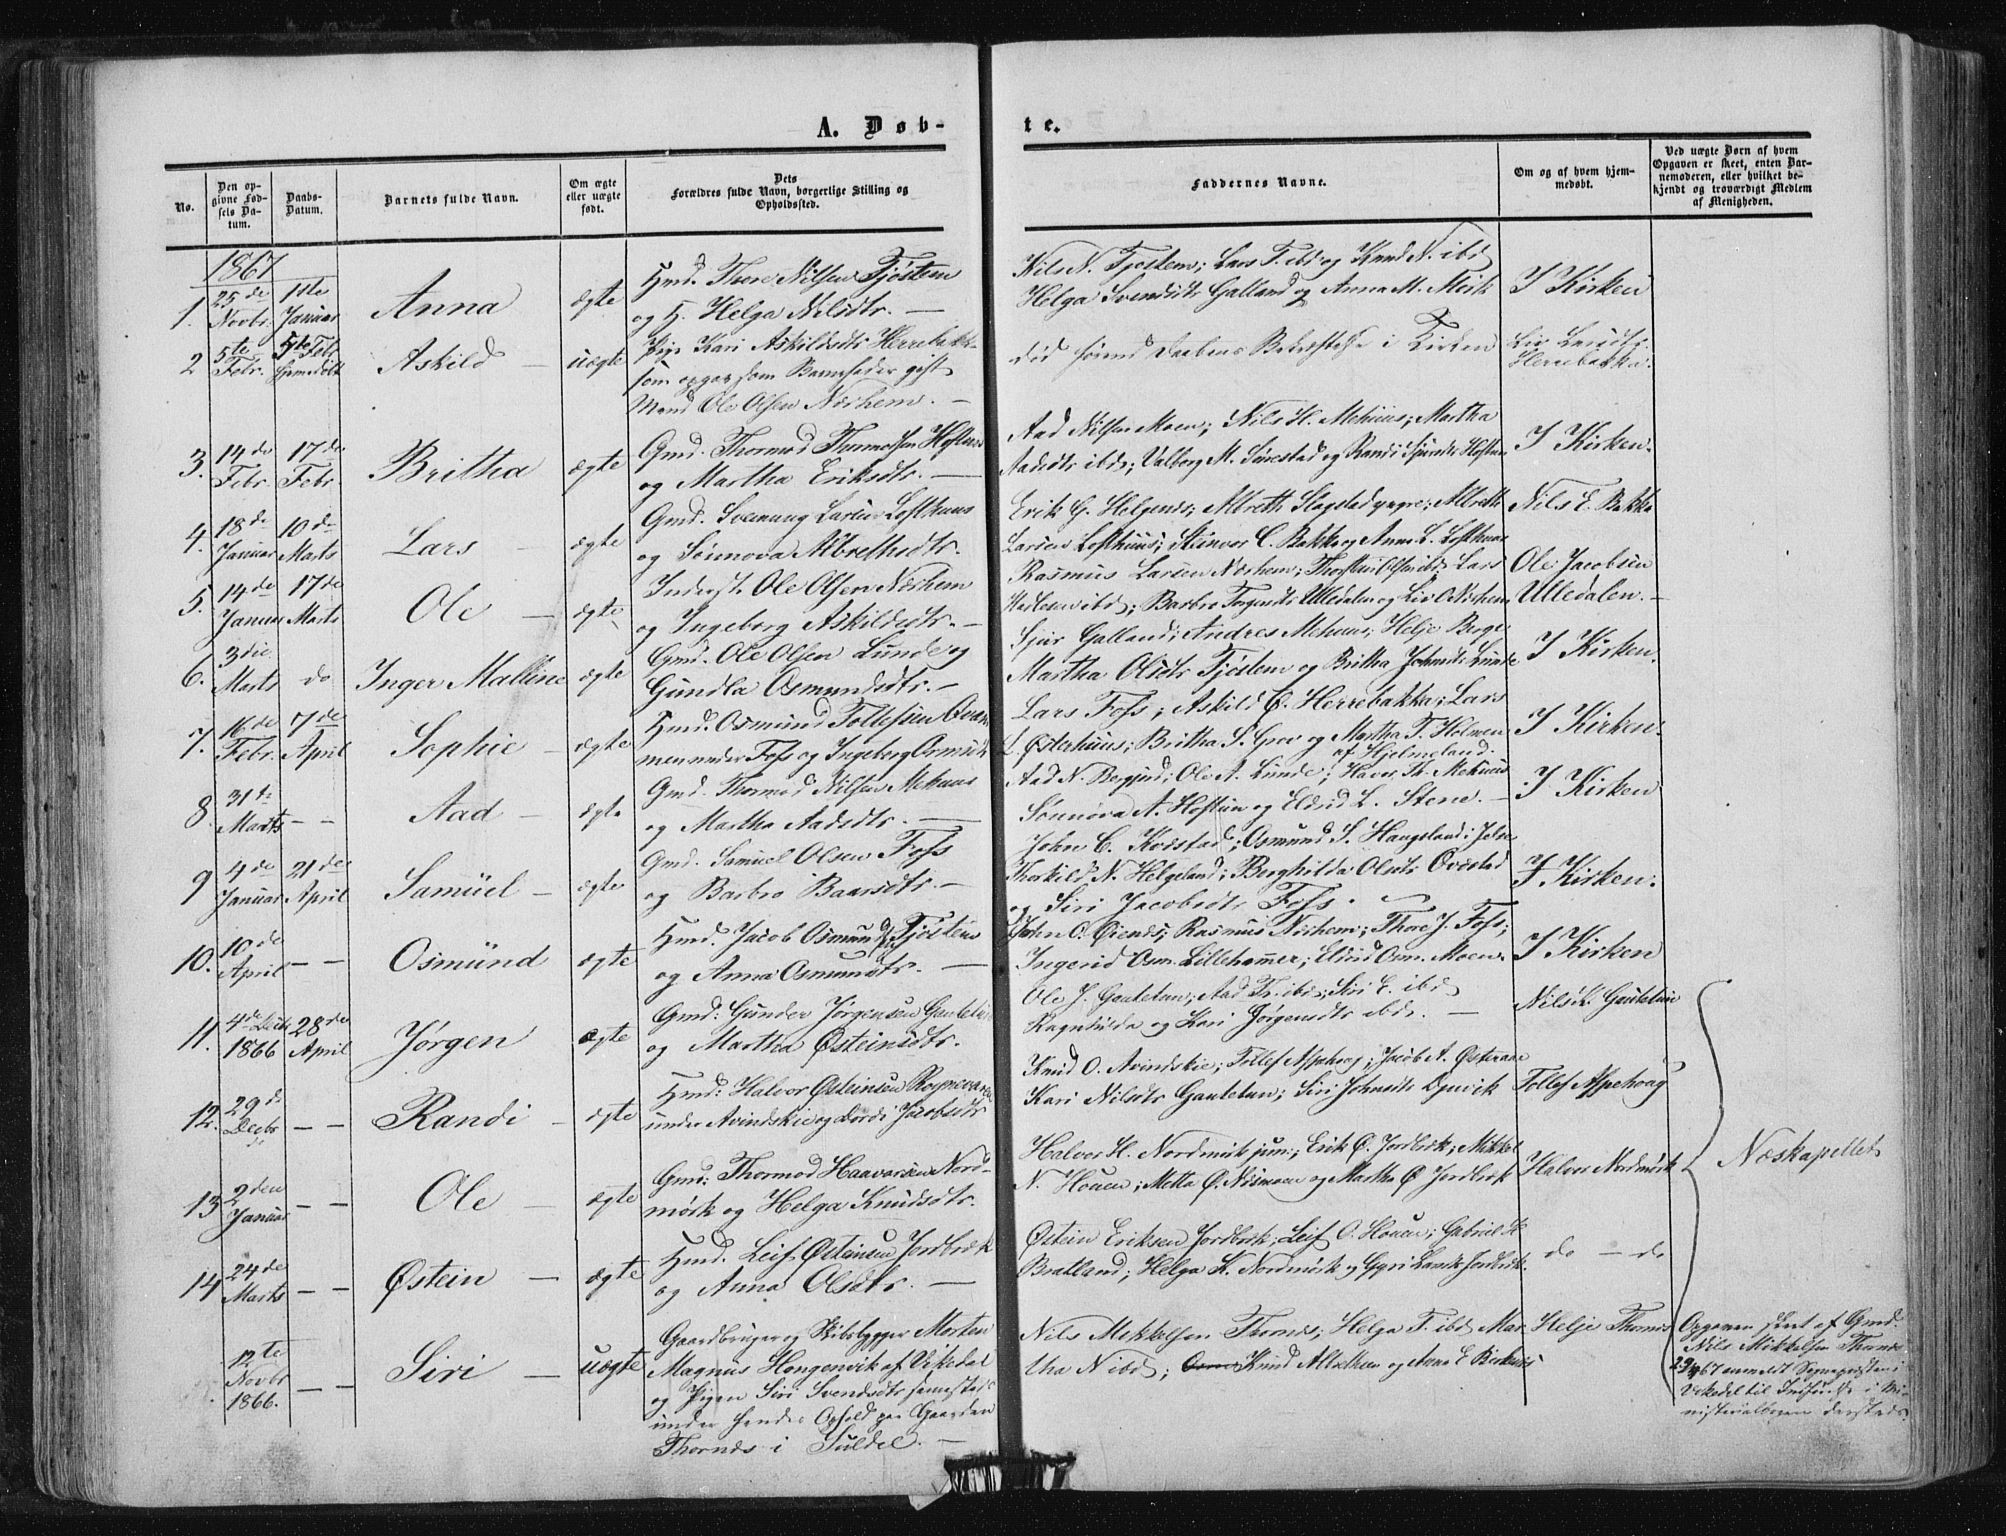 A. Døb-
te.
No.
Den op-
givne Fød-
sels Da-
tum.
Daabs-
Datum.
Barnets fulde Navn.
Om ægte
eller uægte
født.
Dets
Forældres fulde Navn, borgerlige Stilling og
Opholdssted.
Faddernes Navne.
Om og af hvem hjem-
medøbt.
Ved uægte Børn af hvem
Opgaven er skeet, enten Bar-
nemoderen, eller hvilket be-
kjendt og troværdigt Medlem
af Menigheden.
1867
1. 25de Novbr. 11te Januar Anna ægte
Hmd. Thore Nilsen Tjøstem
og H. Helga Nilsdtr. —
Nils N. Tjostem; Lars T. ibd og Knud N. ibd
Helga Svendsdtr Galland og Anna M. Mørk
I Kirken
2 5te Febr. 5te Febr hjemdøbt Askild — uægte
Pige Kari Askildsdtr Herrebakk-
som opgav som Barnefader gift
Mand Ole Olsen Nærhem. —
død førend Daabens Bekræftelse i Kirken
Liv Larsdtr.
Herrebakka.
3. 14de Febr. 17de Febr. Britha ægte
Gmd. Thormod Thormodsen Hoftun
og Martha Eriksdtr. —
Aad Nilsen Moen; Nils H. Mehuus; Martha
Aadsdtr ibd; Valborg M. Sørestad og Randi Hoftun
I Kirken.
4. 18de Januar 10de Marts Lars — ægte
Gmd. Svennung Larsen Lofthuus
og Sønnova Albrethsdtr.
Erik G. Helgenæs; Albreth Slagstad yngre; Albreth
Larsen Lofthuus; Steinvor C. Bakka og Anna L. Lofthuus
Nils E. Bakka
5. 14de Januar 17de Marts Ole — ægte
Inderst Ole Olsen Nærhem
og Ingeborg Askildsdtr. —
Rasmus Larsen Nærhem; Lars
ibd; Barbro Torgersdtr Ulledalen og Liv O Nærhem
Ole Jacobsen
Ulledalen. —
6. 3die Marts do Inger Malline ægte
Gmd. Ole Olsen Lunde og
Gundla Osmundsdtr. —
Sjur Galland; Andres Mehuus; Helje Berge
Martha Olsdtr Tjøstem og Britha Johnsdtr Lunde
I Kirken.
7. 16de Febr. 7de April Sophie — ægte
Hmd. Osmund Tollefsen Qvar-
men under Foss og Ingeborg Ormsdtr
Lars Foss; Askild Ø. Herrebakka; Lars
L. Østerhuus; Britha S. Grov og Martha T. Holmen
af Hjelmeland.
I Kirken.
8 31te Marts — — Aad — ægte
Gmd. Thormod Nilsen Mehuus
og Martha Aadsdtr. —
Aad N. Bergjord; Ole A. Lunde; Haver Th. Mehuus
Sønnøva A. Hoftun og Eldrid L. Stene. —
I Kirken
9 4de Januar 21de April Samuel — ægte
Gmd. Samuel Olsen Foss
og Barbro Baarsdtr. —
John C. Kvæstad; Osmund S. Haugsland i Jelse
Thorkild N. Helgeland; Berghilda Olsdtr Qvæstad
og Siri Jacobsdtr Foss. —
I Kirken.
10. 10de April — — Osmund ægte
Hmd. Jacob Osmundsen Tjøstem
og Anna Osmundsdtr. —
John O. Øienes; Rasmus Nærhem; Thore J. Foss;
Ingerid Osm. Lillehammer; Eldrid Osm. Moen.
I Kirken
11. 4de Decbr 1866 28de April Jørgen ægte
Gmd: Gunder Jørgensen Gautetun
og Martha Østeinsdtr.
Ole J. Gautetun; Aad Th. ibd; Siri E. ibd
Ragnhilda og Kari Jørgensdtr ibd. —
Nils K. Gautetun
12. 29de Decbr do — — Randi — ægte
Hmd: Halvor Østeinsen Rognevarne
under Avindskie og Dordi Jacobsdtr
Knud O. Avindskie; Tollef Aspehoug; Jacob A. Østeraae
Kari Nilsdtr Gautetun; Siri Johnsdtr Djuvik
Tollef Aspehoug
13 2den Januar — — Ole — ægte
Gmd: Thormod Haavarsen Nord-
mørk og Helga Knudsdtr.
Halvor H. Nordmørk jun; Erik Ø. Jordbræk; Mikkel
N. Houen; Metta Ø. Næsmoen og Martha Ø Jordbræk
Halvor Nordmørk
Næskapellet
14 24de Marts — — Østein — ægte
Hmd. Leif Østeinsen Jordbræk
og Anna Olsdtr. —
Østein Eriksen Jordbræk; Leif O. Houen; Gabriel H
Bratland; Helga K. Nordmørk og Gyri Jordbræk.
do — do
12te Novbr 1866. — — Siri — uægte
Gaardbruger og Skibsbygger Morten
Magnus Hongenvik af Vikedal
og Pigen Siri Svendsdtr
under hendes Ophold paa Gaarden
Thornæs i Suldal. —
Nils Mikkelsen Thornæs; Helga T. ibd Mar-
tha N ibd; Knud og Anna E
Helje Thornæs
Opgaven skeet af Gmd.
Nils Mikkelsen Thornæs
67 anmeldt Sognepræsten i
Vikedal til Indførelse i Mi-
nisterialbogen dersteds.